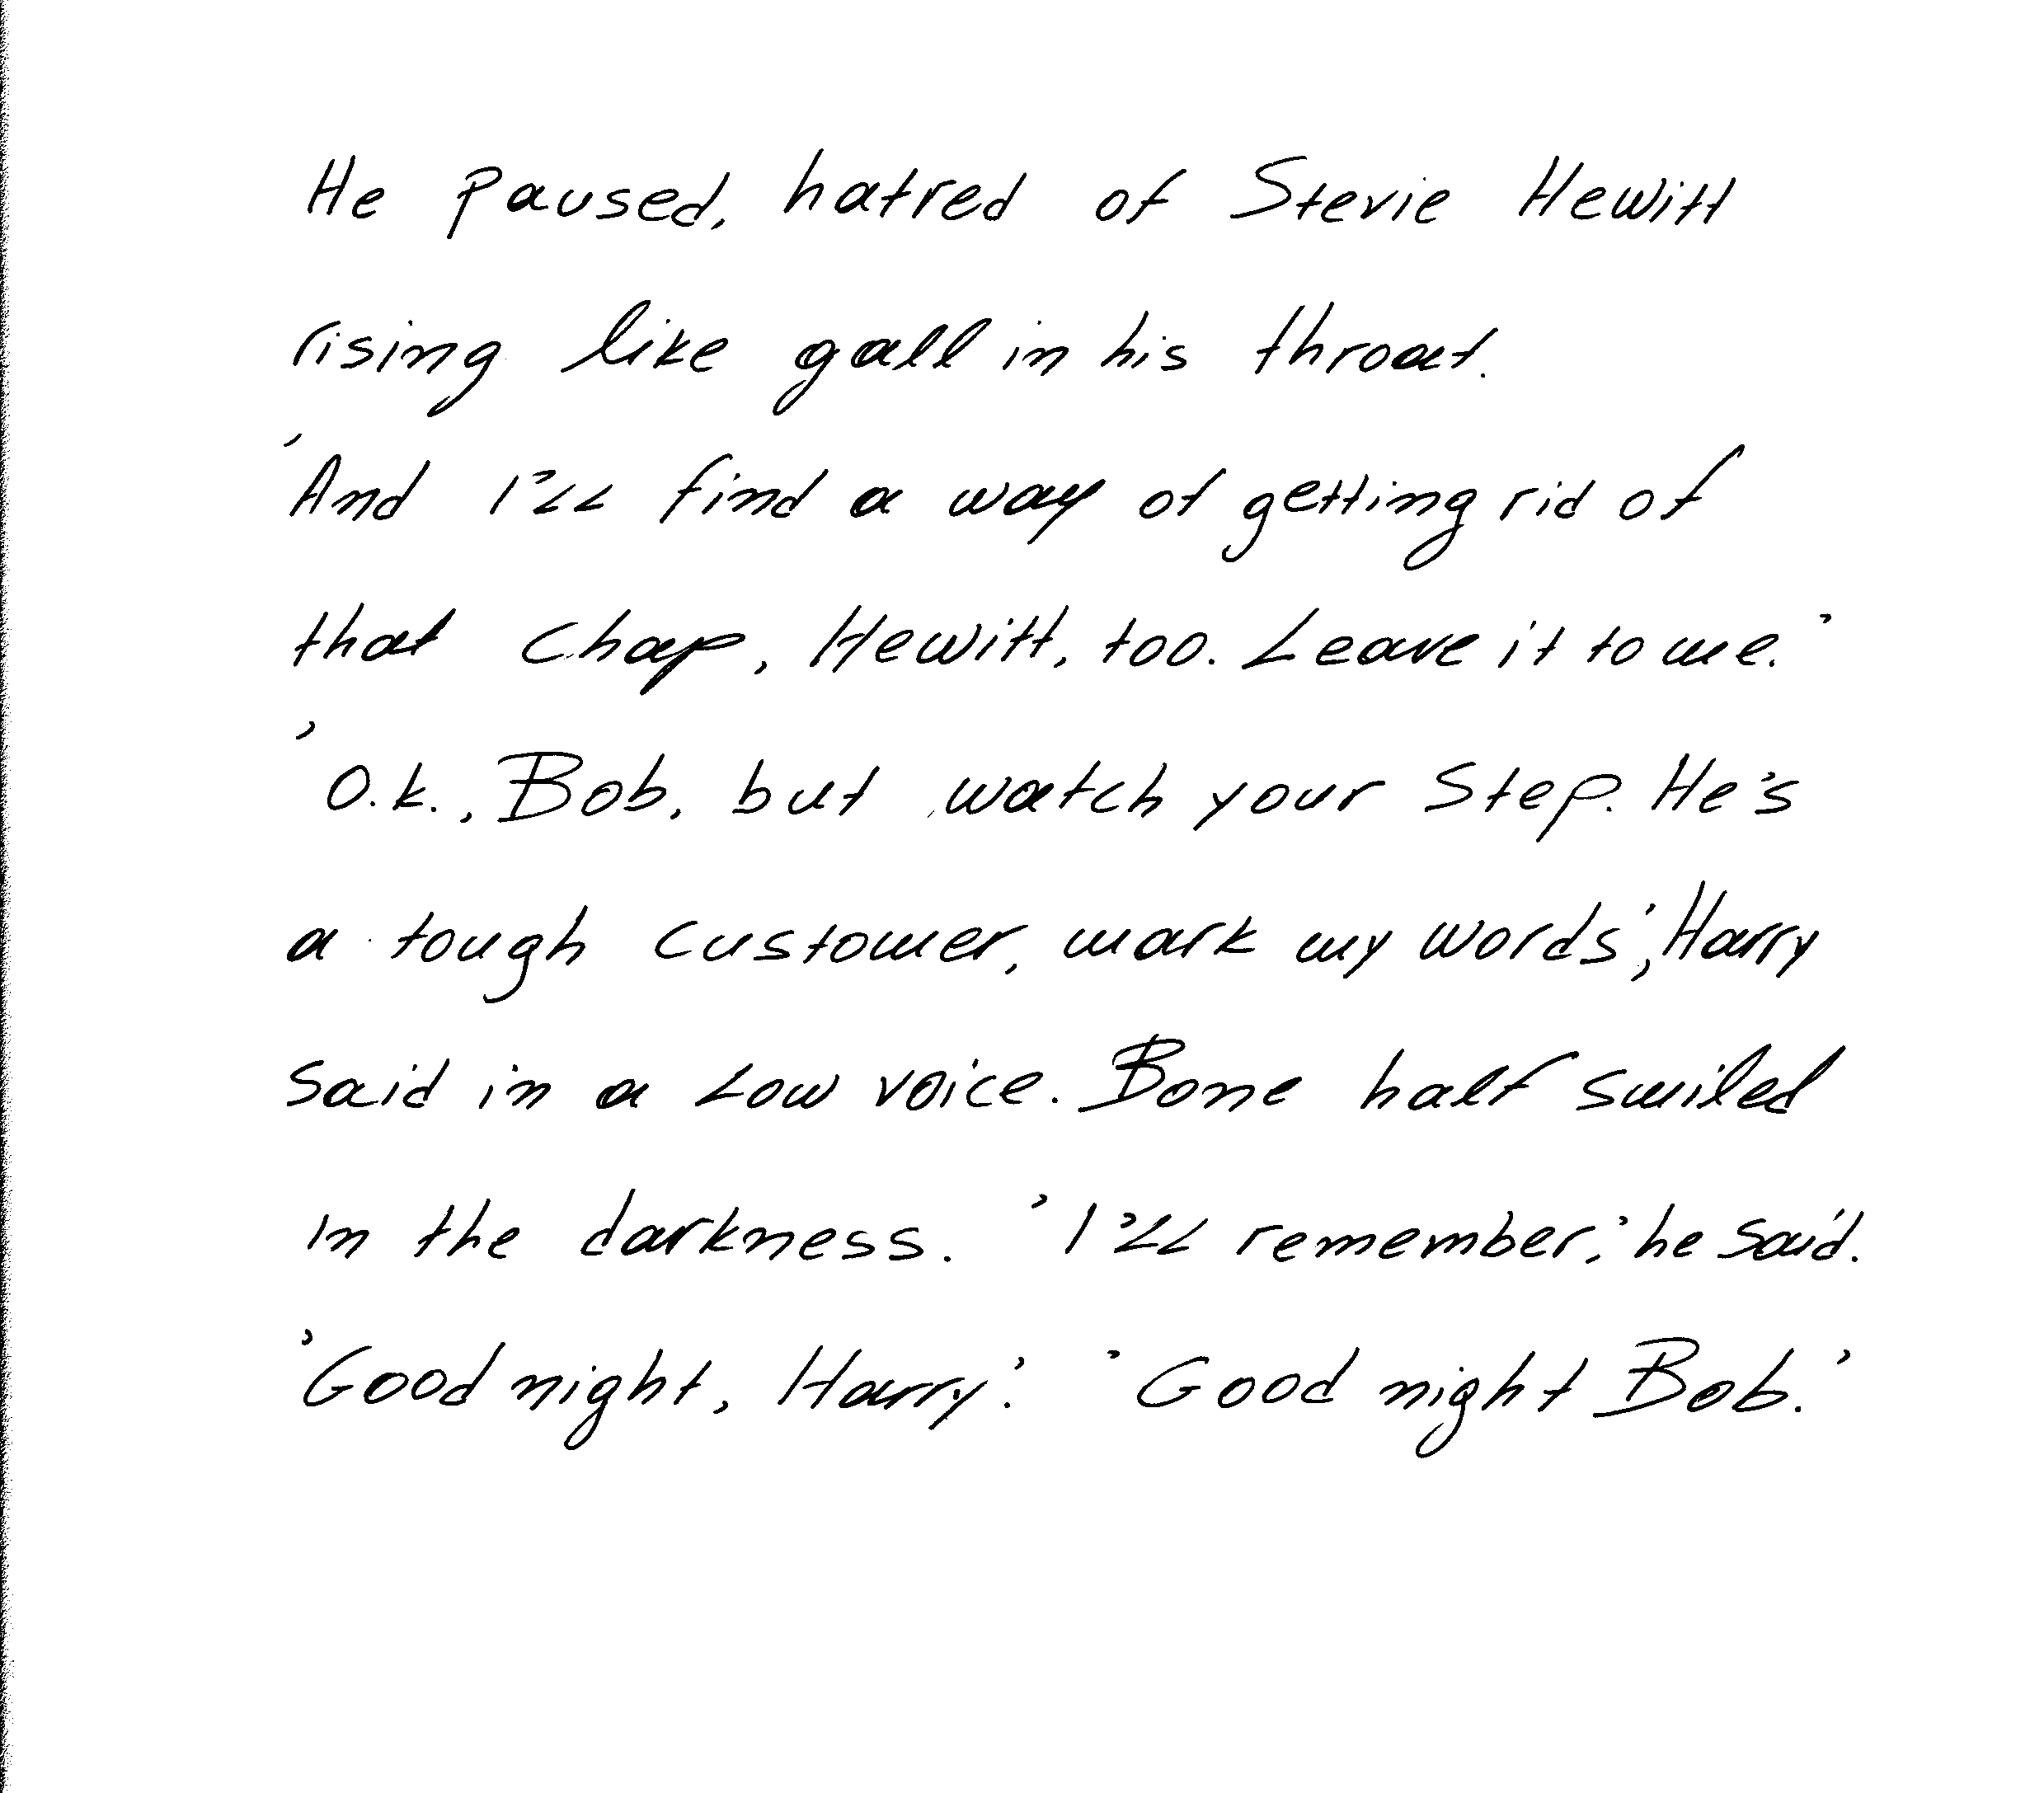 He paused, hatred of Stevie Hewitt
rising like gall in his throat.
'And I'll find a way of getting rid of
that chap, Hewitt, too. Leave it to me.'
'O.k., Bob, but watch your step. He's
a tough customer, mark my words', Harry
said in a low voice. Bone half smiled
in the darkness. 'I'll remember,' he said.
'Good night, Harry.' 'Good night Bob.'